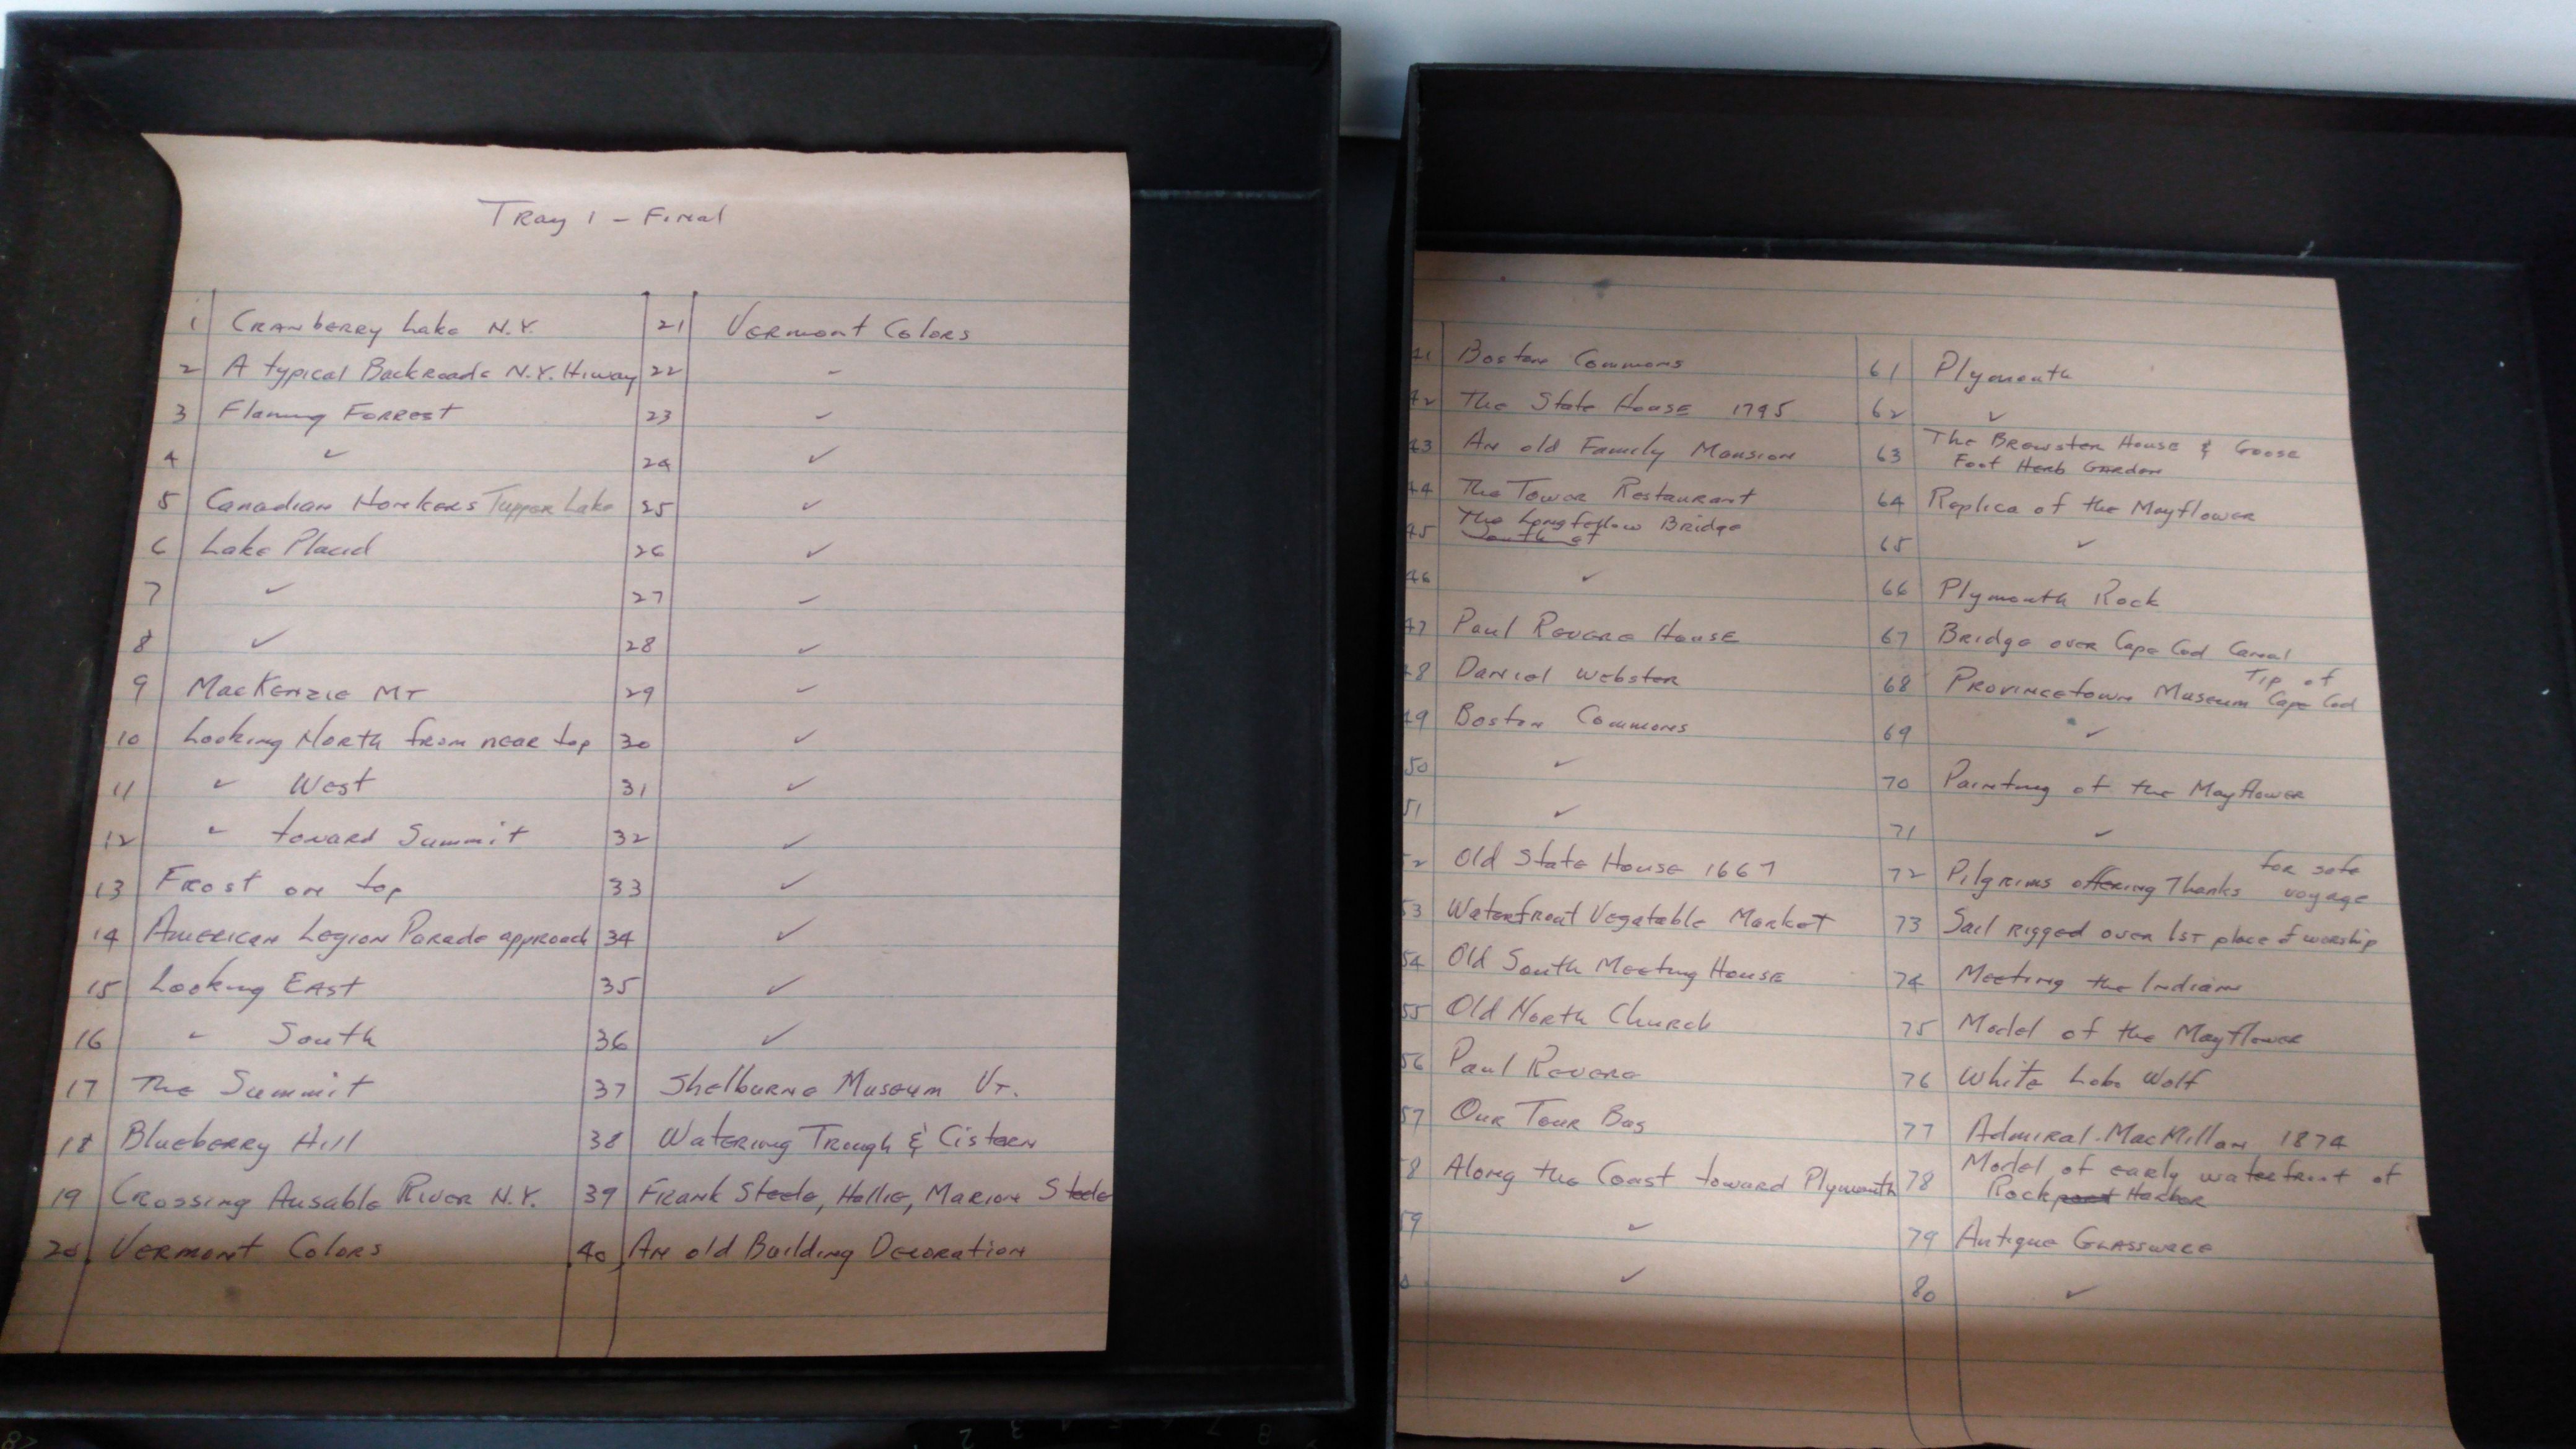 Tray 1 - Final
1 Cranberry Lake N.Y.
2 A typical Backroads N.Y. Hiway
3 Flaming Forrest
4 ✓
5 Canadian Honkers Tupper Lake
6 Lake Placid
7 ✓
8 ✓
9 MacKenzie MT
10 Looking North from near top
11 " West
12 " toward Summit
13 Frost on top
14 American Legion Parade approach
15 Looking East
16 " South
17 The Summit
18 Blueberry Hill
19 Crossing Ausable River N.Y.
20 Vermont Colors
21 Vermont Colors
22 ✓
23 ✓
24 ✓
25 ✓
26 ✓
27 ✓
28 ✓
29 ✓
30 ✓
31 ✓
32 ✓
33 ✓
34 ✓
35 ✓
36 ✓
37 Shelburne Museum Vt.
38 Watering Trough & Cistern
39 Frank Steele, Hollie, Marion Steele
40 An old Building Decoration
41 Boston Commons
42 The State House 1795
43 An old Family Mansion
44 The Tower Restaurant
45 The Longfellow Bridge
46 ✓
47 Paul Revere House
48 Daniel Webster
49 Boston Commons
50 ✓
51 ✓
52 Old State House 1667
53 Waterfront Vegatable Market
54 Old South Meeting House
55 Old North Church
56 Paul Revere
57 Our Tour Bus
58 Along the Coast toward Plymouth
59 ✓
✓
61 Plymouth
62 ✓
63 The Brewster House & Goose
Foot Herb Garden
64 Replica of the Mayflower
65 ✓
66 Plymouth Rock
67 Bridge over Cape Cod Canal
68 Provincetown Museum Tip of
Cape Cod
69 ✓
70 Painting of the Mayflower
71 ✓
72 Pilgrims offering Thanks for safe
voyage
73 Sail rigged over 1st place of worship
74 Meeting the Indians
75 Model of the Mayflower
76 White Lobo Wolf
77 Admiral MacMillan 1874
78 Model of early waterfront of
Rockport Harbor
79 Antique Glassware
80 ✓